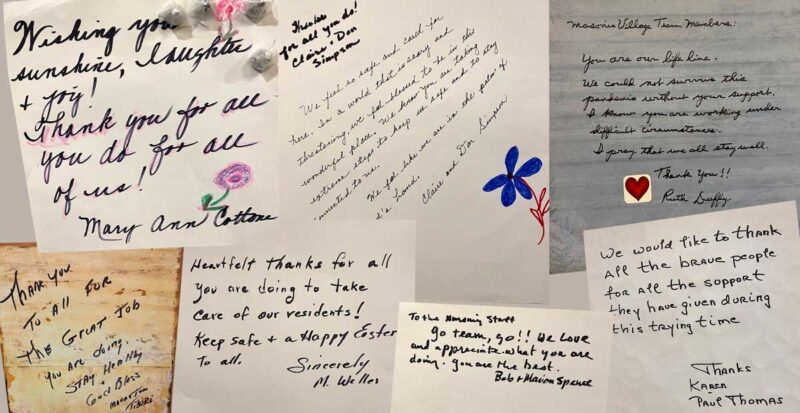 Wishing you
sunshine, laughter
+ joy!
Thank you for all
you do for all
of us!
Mary Ann Cottone
Thanks
for all you do!
Claire & Don
Simpson
We feel so safe and cared for
here. In a world that is scary and
threatening, we feel blessed to be in this
wonderful place. We know you are taking
extreme steps to keep us safe and to stay
connected to us.
We feel like we are in the palm of
God's hand.
Claire and Don Simpson
Masonic Village Team Members:
You are our life line.
We could not survive this
pandemic without your support.
I know you are working under
difficult circumstances.
I pray that we all stay well.
Thank you!!
Ruth Duffy
Thank you
To all for
The Great Job
you are doing.
Stay Healthy
God Bless
Heartfelt thanks for all
you are doing to take
care of our residents!
Keep safe + a Happy Easter
To all.
Sincerely
M. Weller
To the Nursing Staff
Go team, go!! We love
and appreciate what you are
doing. You are the best.
Bob & Marion Spence
We would like to thank
all the brave people
for all the support
they have given during
this trying time
Thanks
Karen
Paul Thomas